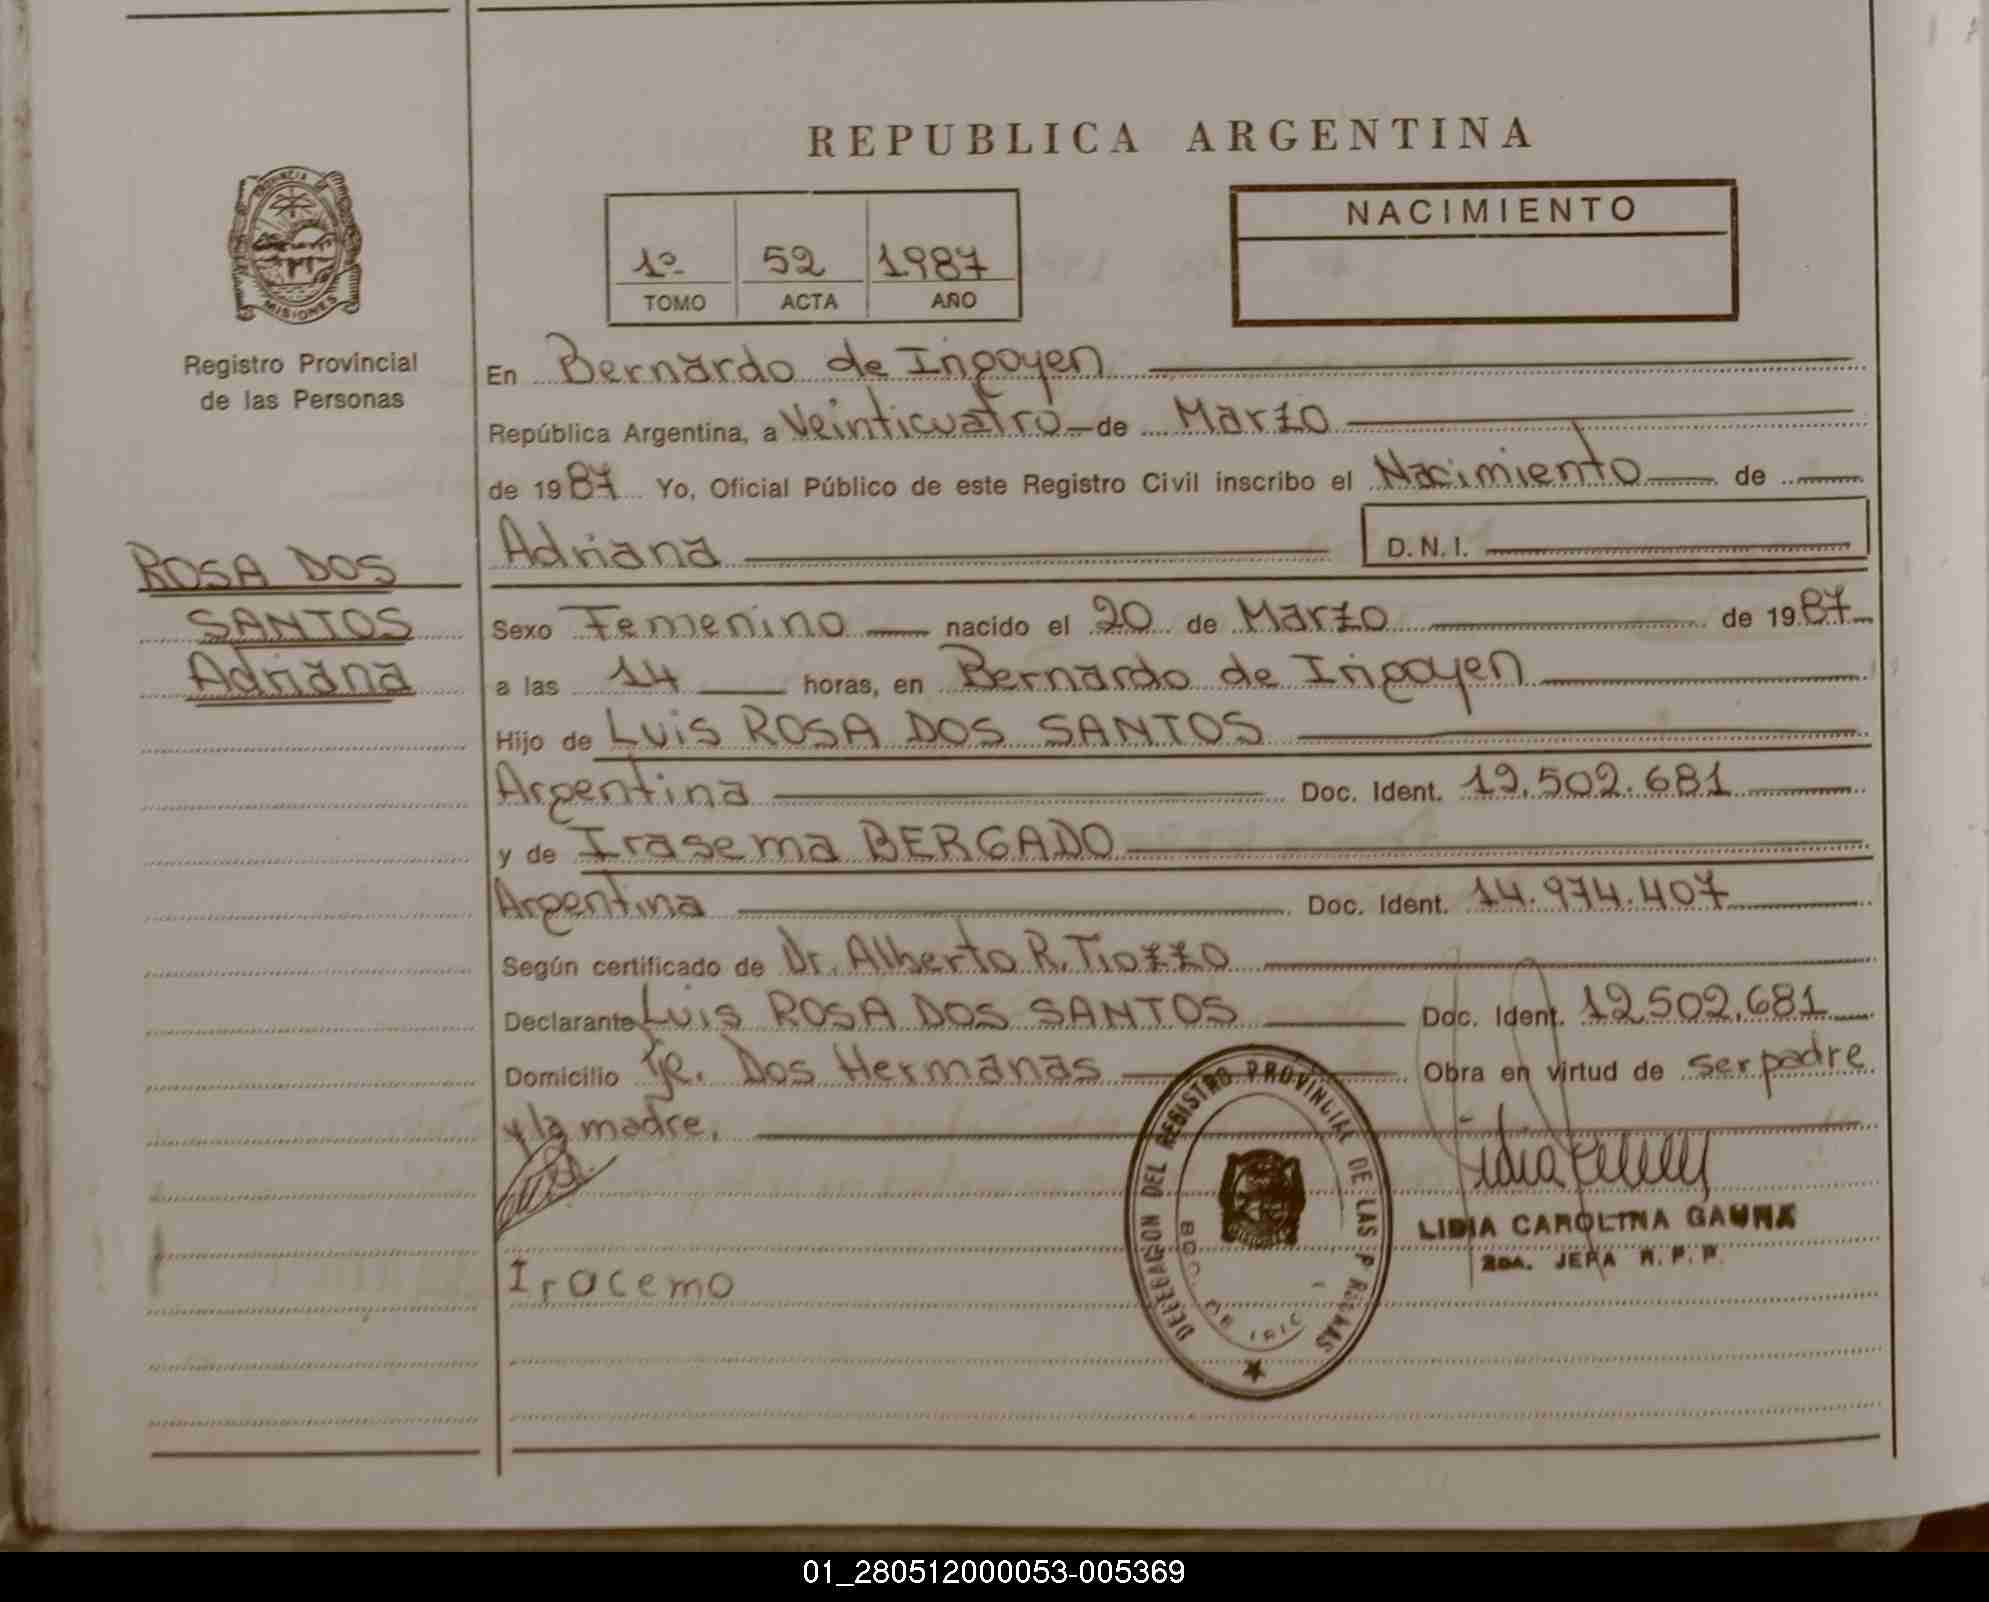 REPUBLICA ARGENTINA
PROVINCIA DE MISIONES
Registro Provincial
de las Personas
1º 52 1987
TOMO ACTA AÑO
NACIMIENTO
En Bernardo de Irigoyen
República Argentina, a Veinticuatro de Marzo
de 1987 Yo, Oficial Público de este Registro Civil inscribo el Nacimiento de
Adriana D.N.I.
ROSA DOS
SANTOS
Adriana
Sexo Femenino nacido el 20 de Marzo de 1987
a las 14 horas, en Bernardo de Irigoyen
Hijo de Luis ROSA DOS SANTOS
Argentina Doc. Ident. 12.502.681
y de Irasema BERGADO
Argentina Doc. Ident. 14.974.407
Según certificado de Dr. Alberto R. Tiozzo
Declarante Luis ROSA DOS SANTOS Doc. Ident. 12.502.681
Domicilio Pje. Dos Hermanas Obra en virtud de ser padre
y la madre.
Iracema
DELEGACION DEL REGISTRO PROVINCIAL DE LAS PERSONAS
BDO. DE IRIG
LIDIA CAROLINA GAUNA
2DA. JEFA R.P.P.
01_280512000053-005369